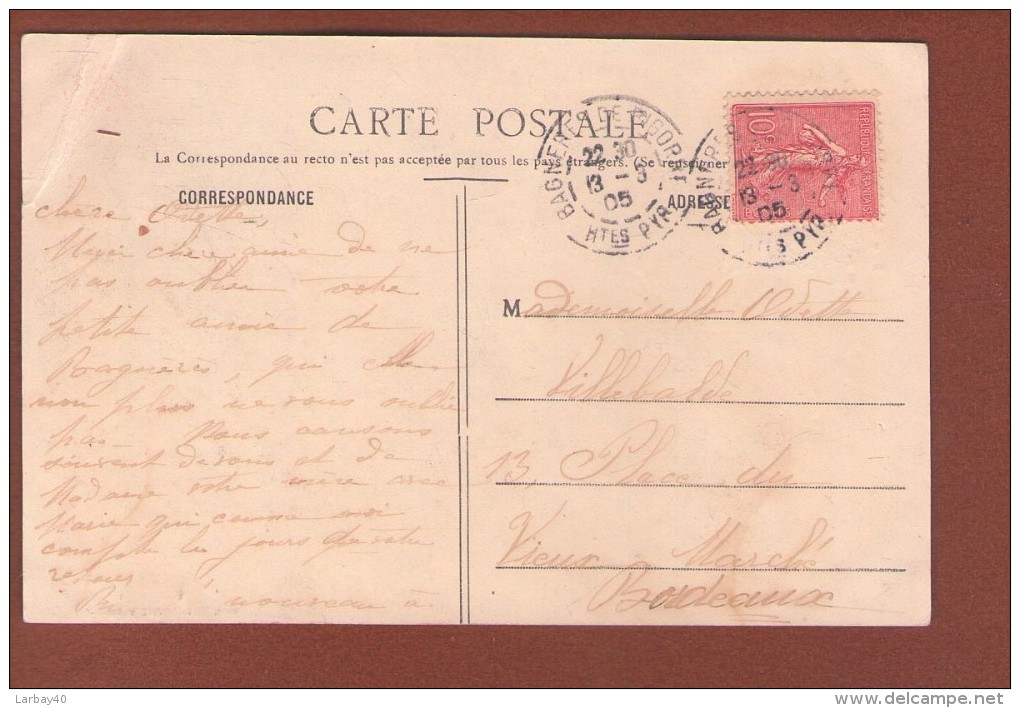 CARTE POSTALE
La Correspondance au recto n'est pas acceptée par tous les pays étrangers. (Se renseigner
CORRESPONDANCE
ADRESSE
BAGNERES DE BIGORRE
22 30
13 - 3
05
HTES PYR
BAGNERES
22 30
13 - 3
05
HTES PYR
10c
REPUBLIQUE FRANÇAISE
chère Odette,
Merci chère amie de ne
pas oublier votre
petite amie de
Bagnères, qui elle
non plus ne vous oublie
pas - Nous causons
souvent de vous et de
Madame votre mère avec
Marie qui comme moi
compte les jours de votre
retour
nouveau à
Mademoiselle Odette
13, Place du
Vieux Marché
Bordeaux
Larbay40
www.delcampe.net